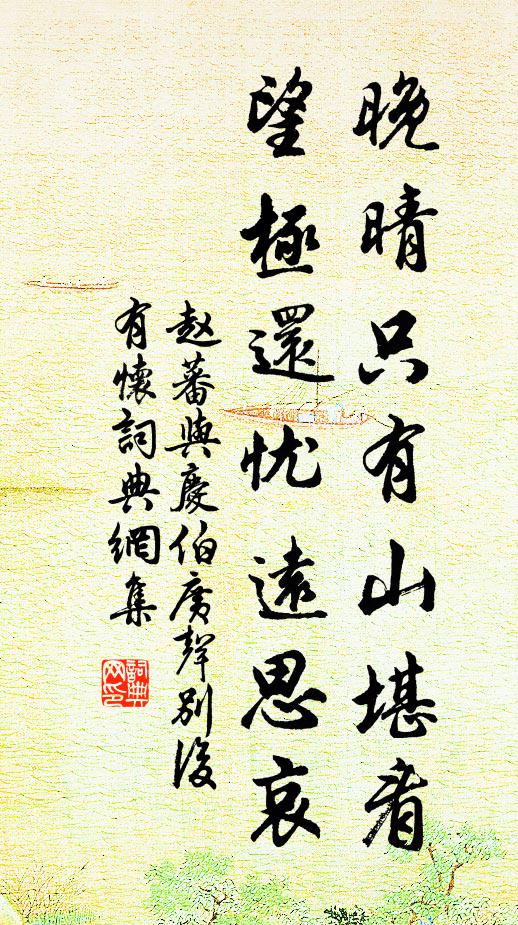 晚晴只有山堪看
望極還忧遠思哀
赵蕃與慶伯廣聲别後
有懷詞典網集
詞典网印